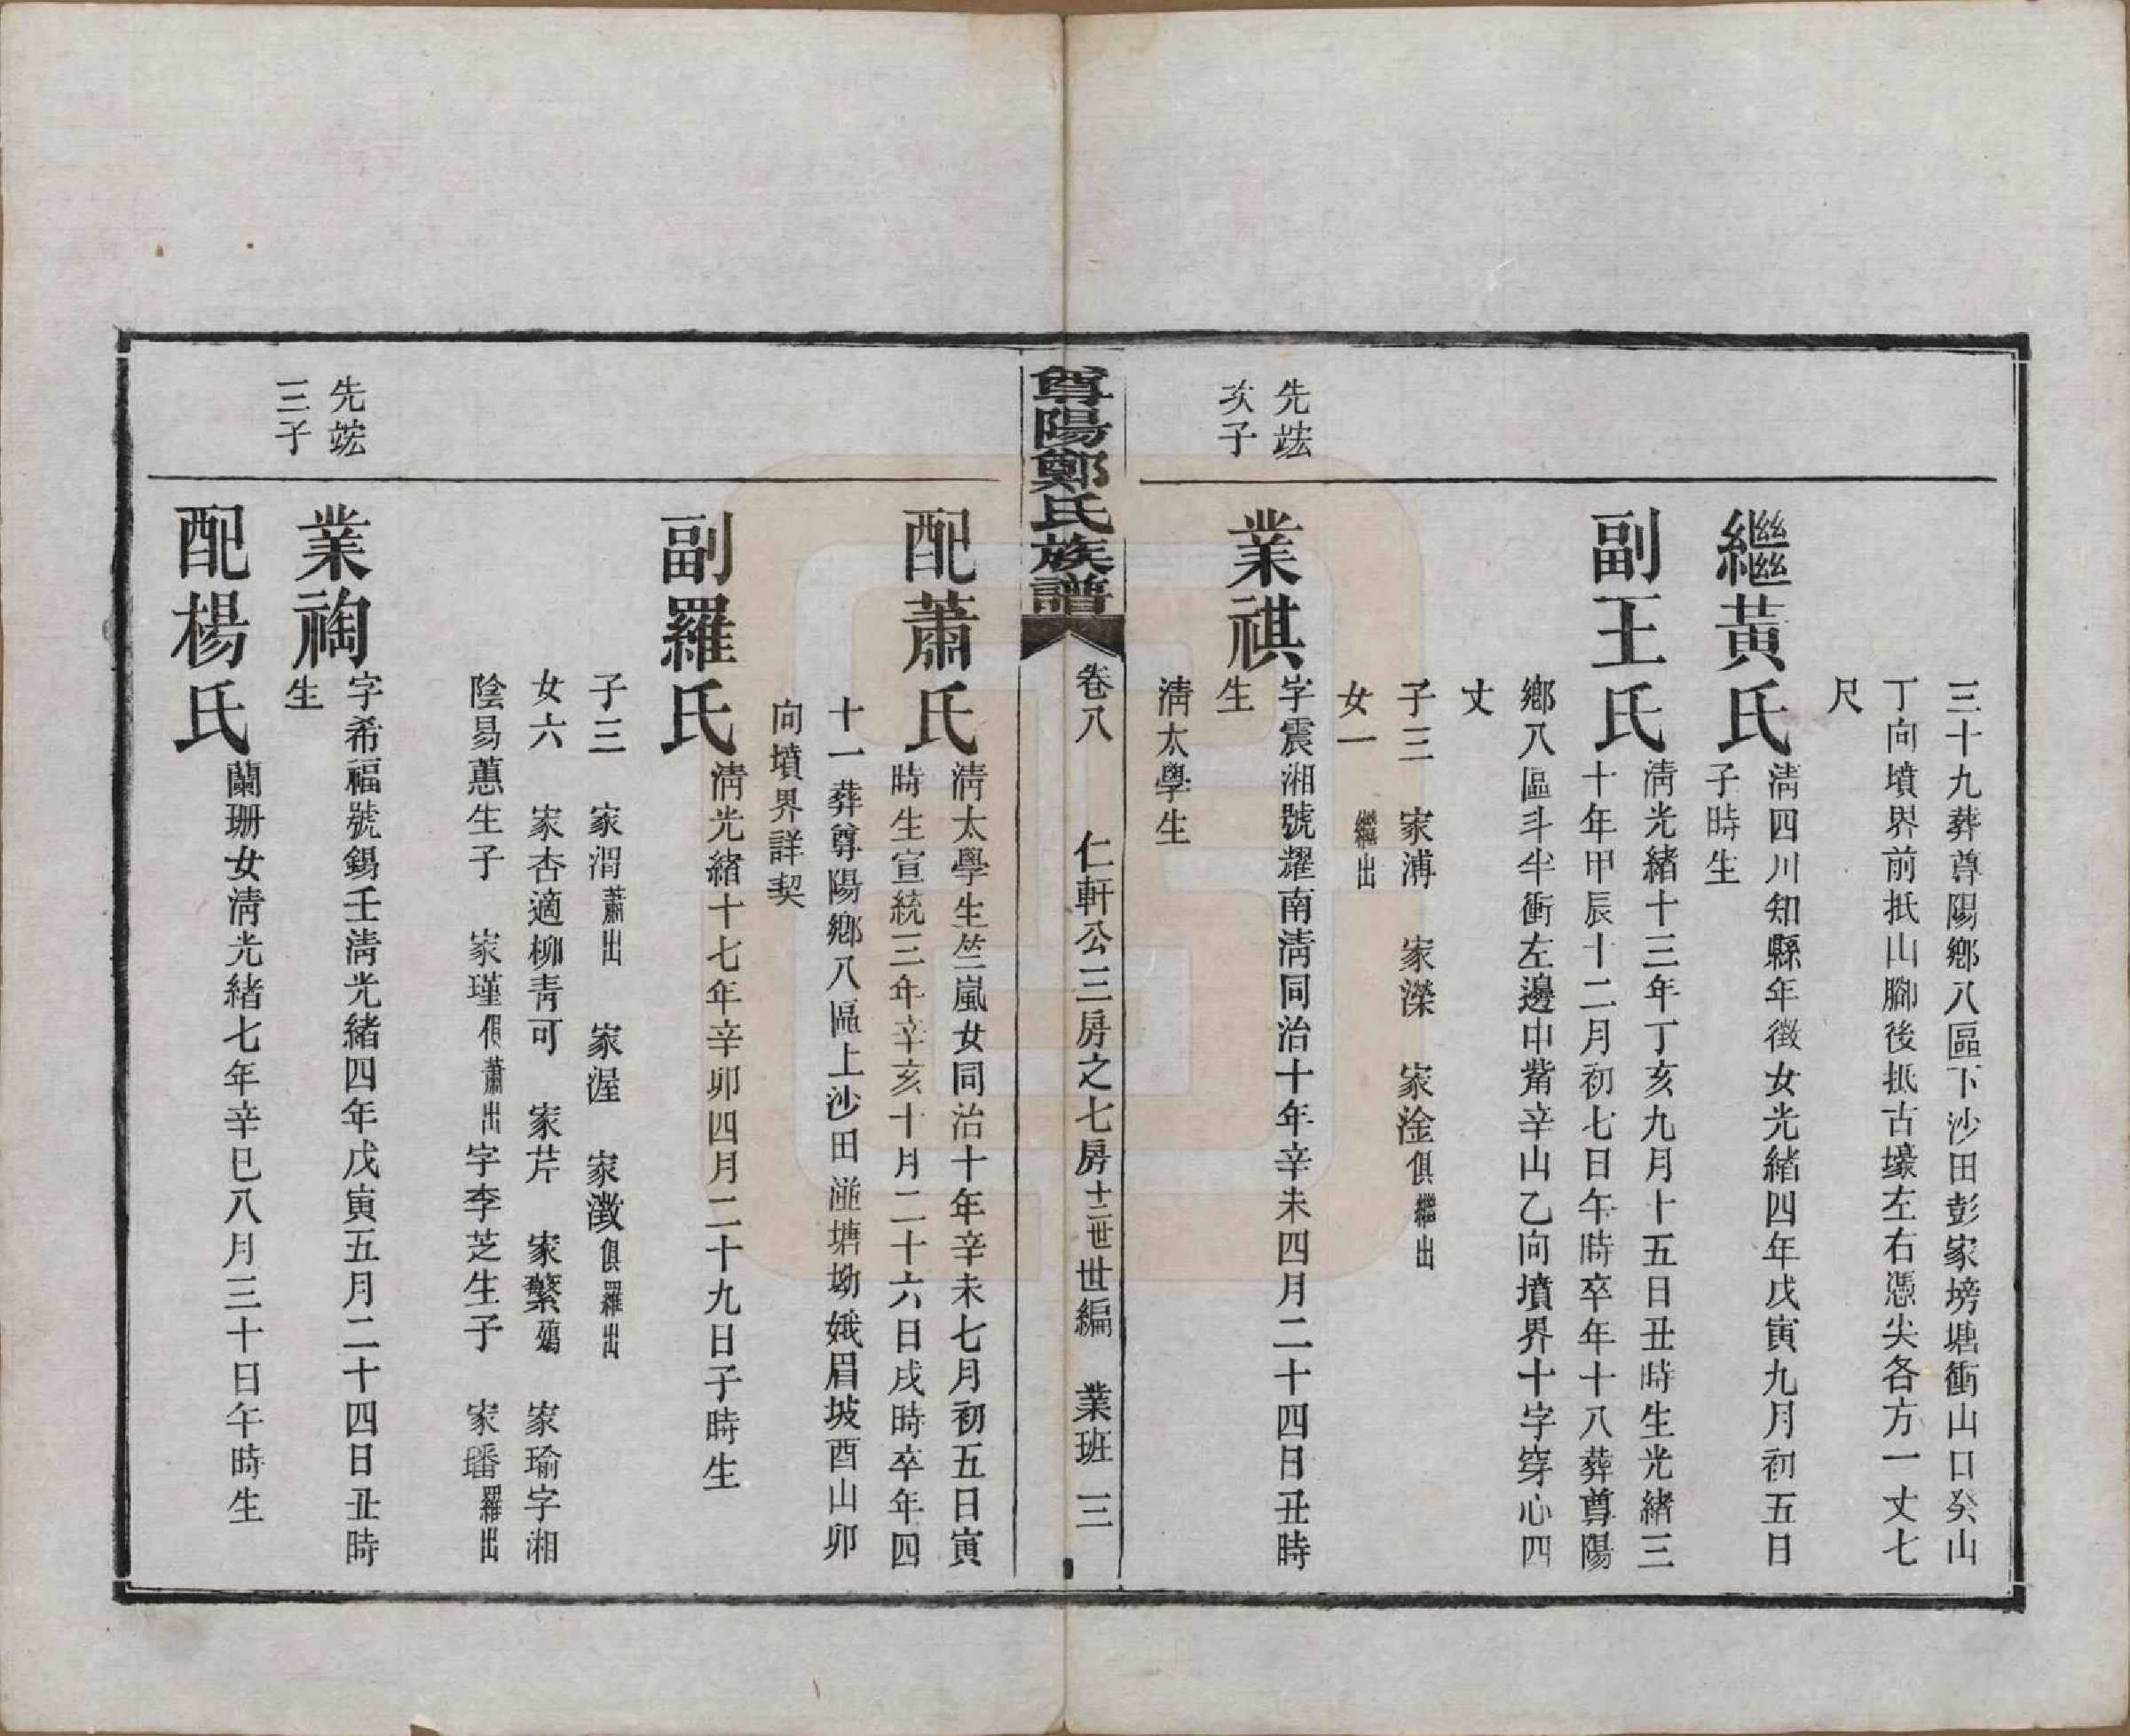 三十九葬尊陽鄉八區下沙田彭家塝塘衝山口癸山
丁向墳界前抵山腳後抵古壕左右憑尖各方一丈七
尺
繼黃氏
清四川知縣年徵女光緒四年戊寅九月初五日
子時生
副王氏
清光緒十三年丁亥九月十五日丑時生光緒三
十年甲辰十二月初七日午時卒年十八葬尊陽
鄉八區斗半衝左邊中嘴辛山乙向墳界十字穿心四
丈
子三 家溥 家濚 家淦俱繼出
女一 繼出
先竤
次子
業祺
字震湘號耀南清同治十年辛未四月二十四日丑時
生
清太學生
尊陽鄭氏族譜
卷八 仁軒公三房之七房十二世世編 業班 三
配蕭氏
清太學生竺嵐女同治十年辛未七月初五日寅
時生宣統三年辛亥十月二十六日戌時卒年四
十一葬尊陽鄉八區上沙田漨塘坳娥眉坡酉山卯
向墳界詳契
副羅氏
清光緒十七年辛卯四月二十九日子時生
子三 家渭蕭出 家渥 家澂俱羅出
女六 家杏適柳青可 家芹 家蘩殤 家瑜字湘
陰易蕙生子 家瑾俱蕭出字李芝生子 家璠羅出
先竤
三子
業裪
字希福號錫壬清光緒四年戊寅五月二十四日丑時
生
配楊氏
蘭珊女清光緒七年辛巳八月三十日午時生